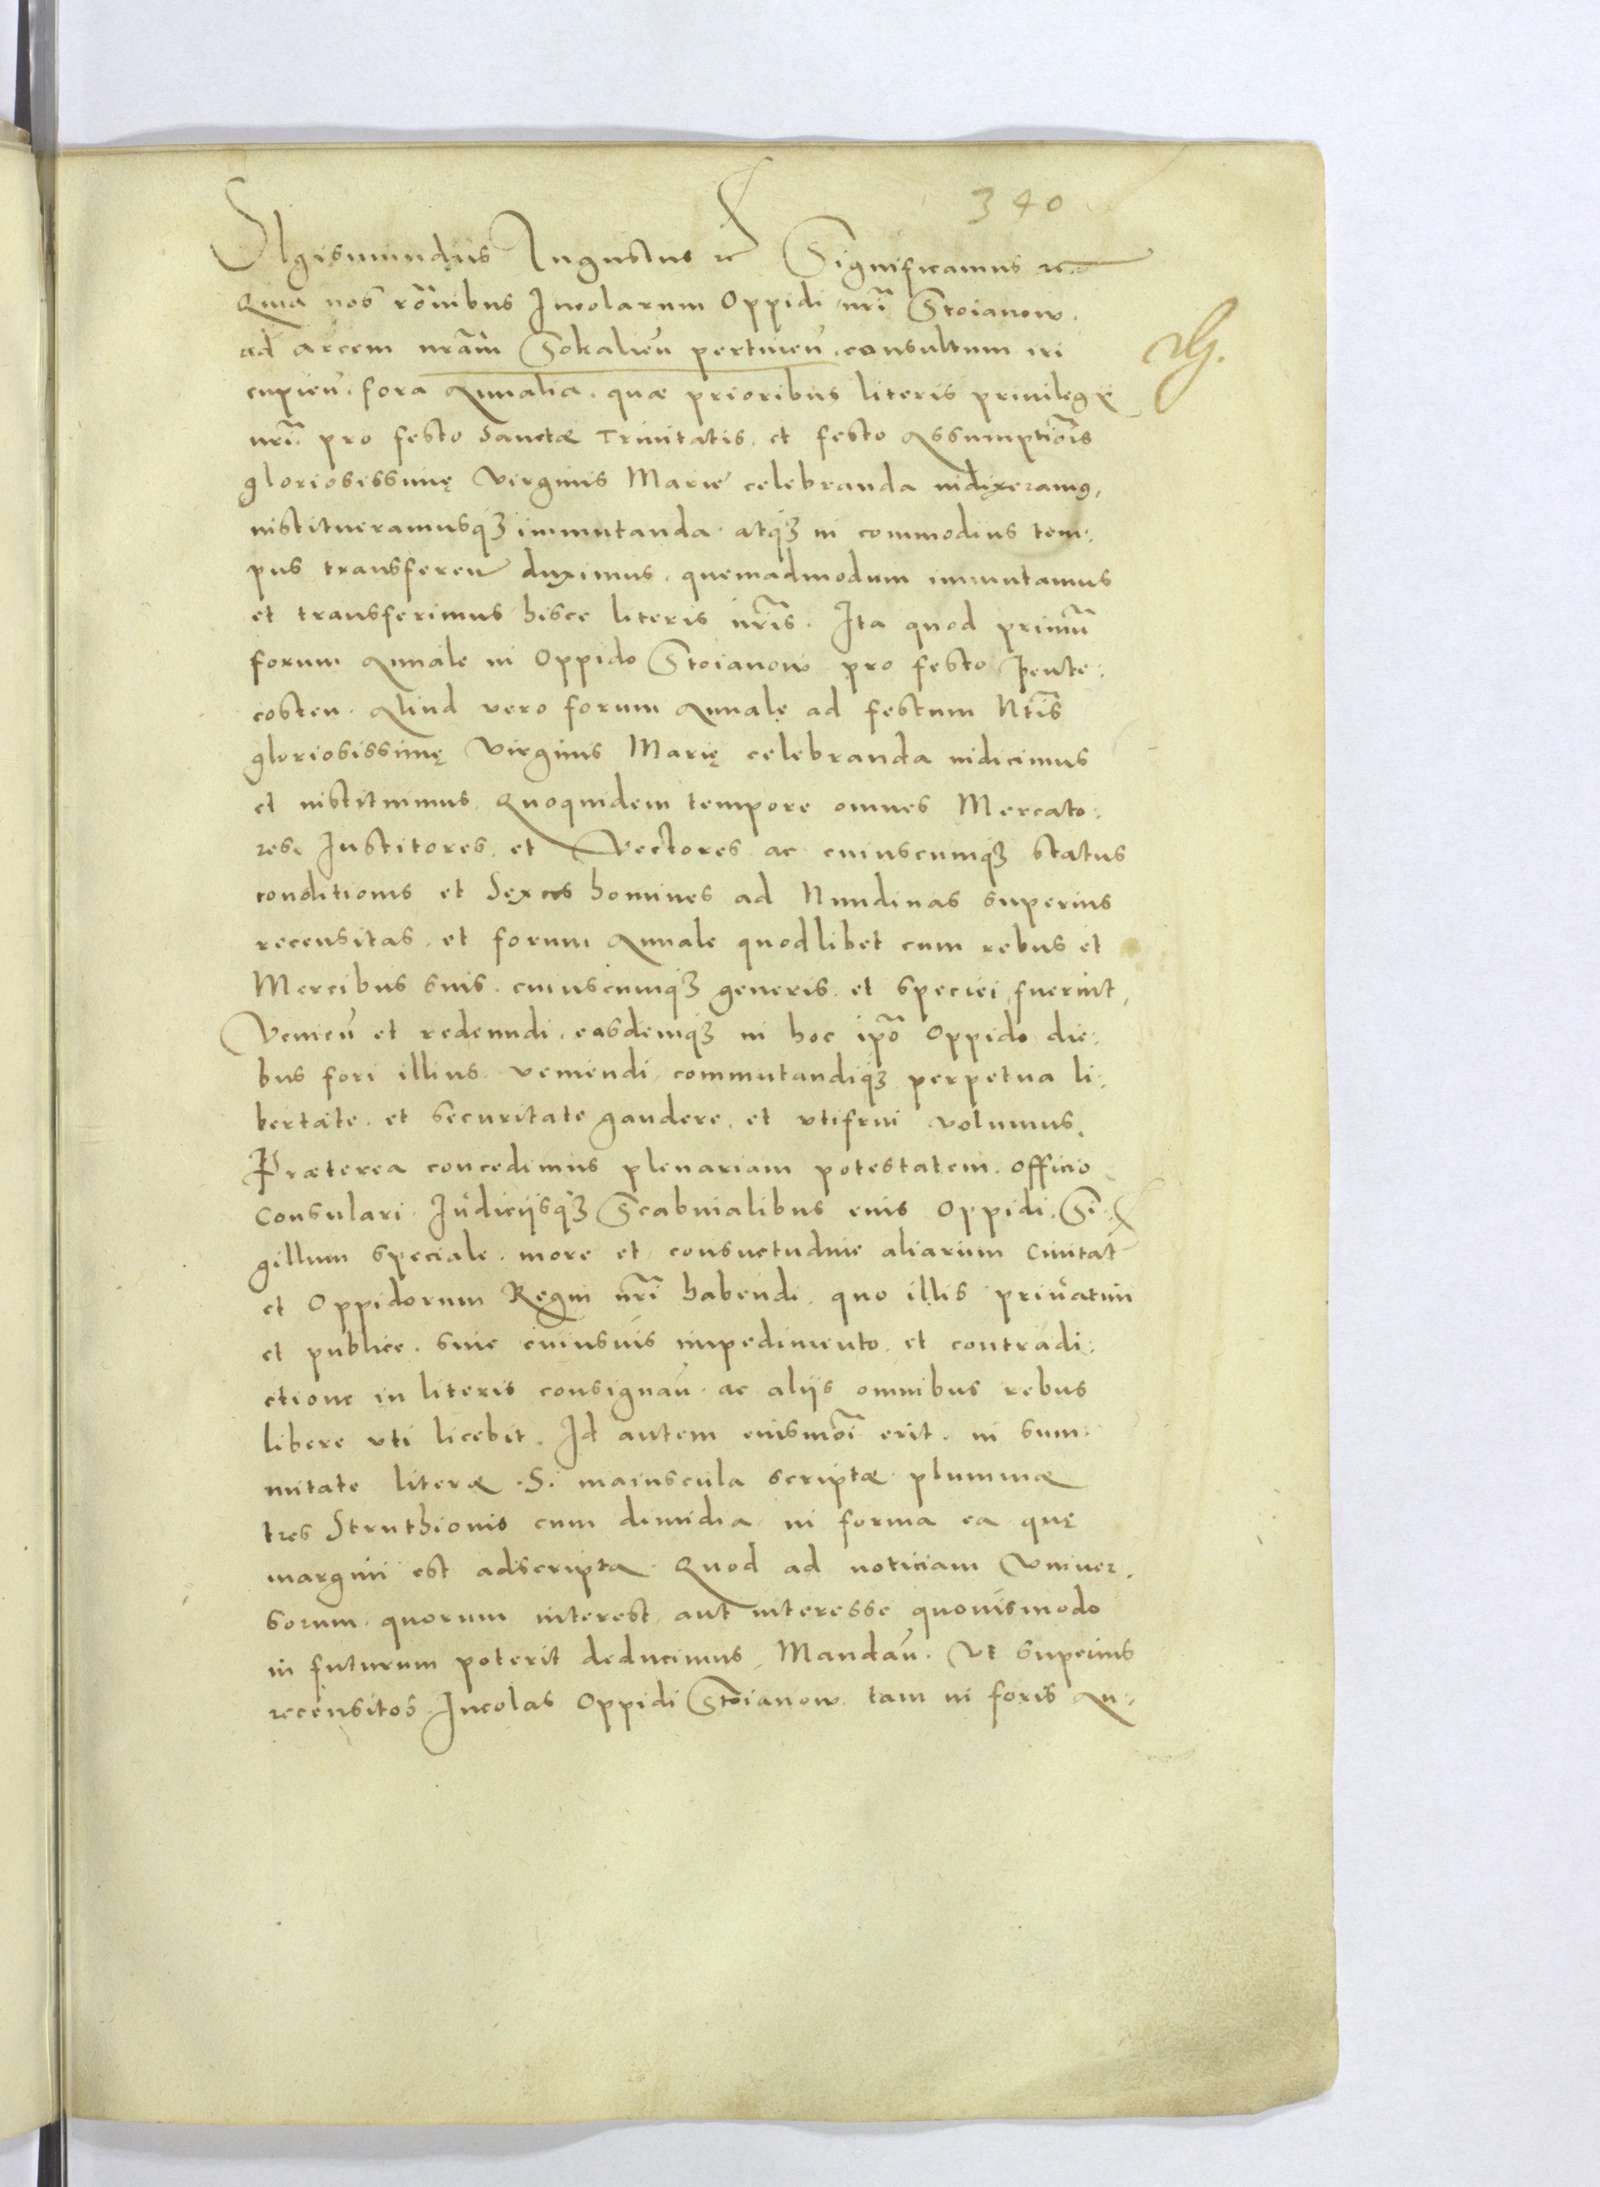 340
Sigismundus Augustus etc Significamus etc
Quia nos rõnibus Incolarum Oppidi nrĩ Stoianow
ad arcem nrãm Sokalieñ pertineñ consultum iri
cupieñ. fora Annalia. quæ prioribus literis priuilegy
nrĩ pro festo Sanctæ Trinitatis. et festo Assumptiõis
gloriosissimę Virginis Marie celebranda indixeramus,
institueramusq3 immutanda atq3 in commodius tem:
pus transfereñ duximus. quemadmodum immutamus
et transferimus hisce literis nrĩs. Ita quod primũ
forum Annale in Oppido Stoianow pro festo Pente:
costen. Aliud vero forum Annale ad festum Ntĩs
gloriosissimę Virginis Marię celebranda indicimus
et instituimus. Quoquidem tempore omnes Mercato:
res. Institores. et Vectores ac cuiuscumq3 status
conditionis et sexus homines ad Nundinas superius
recensitas. et forum Annale quodlibet cum rebus et
Mercibus suis. cuiuscumq3 generis et speciei fuerint,
Venieñ et redeundi. easdemq3 in hoc ipõ Oppido die:
bus fori illius. vemendi. commutandiq3 perpetua li:
bertate. et securitate gaudere. et vtifrui volumus.
Præterea concedimus plenariam potestatem. officio
Consulari. Iudiciysq3 Scabinialibus eius Oppidi. Si:
gillum speciale. more et consuetudine aliarum Ciuitat
et Oppidorum Regni nrĩ habendi. quo illis priuatim
et publice. sine cuiusuis impedimento. et contradi:
ctione in literis consignañ. ac aliys omnibus rebus
libere vti licebit. Id autem eiusmõi erit. in sum:
mitate literæ .S. maiuscula scriptæ plummæ
tres Struthionis cum dimidia in forma ea quę
margini est adscripta. Quod ad noticiam Vniuer:
sorum. quorum interest, aut interesse quouismodo
in futurum poterit deducimus. Mandañ. Vt superius
recensitos Incolas Oppidi Stoianow. tam in foris An: